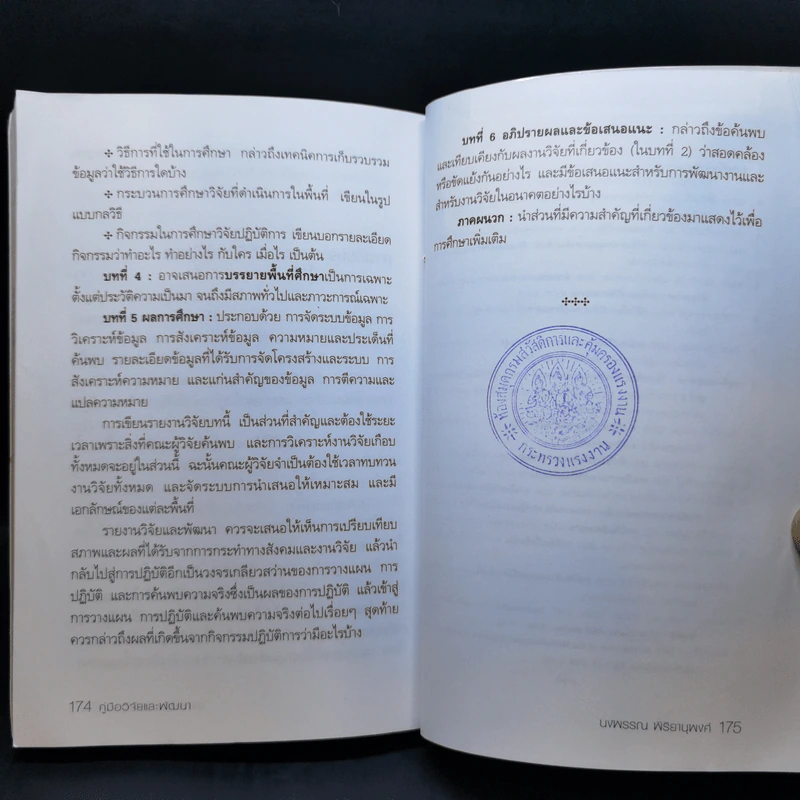 ✣ วิธีการที่ใช้ในการศึกษา กล่าวถึงเทคนิคการเก็บรวบรวม
ข้อมูลว่าใช้วิธีการใดบ้าง
✣ กระบวนการศึกษาวิจัยที่ดำเนินการในพื้นที่ เขียนในรูป
แบบกลวิธี
✣ กิจกรรมในการศึกษาวิจัยปฏิบัติการ เขียนบอกรายละเอียด
กิจกรรมว่าทำอะไร ทำอย่างไร กับใคร เมื่อไร เป็นต้น
บทที่ 4 : อาจเสนอการบรรยายพื้นที่ศึกษาเป็นการเฉพาะ
ตั้งแต่ประวัติความเป็นมา จนถึงมีสภาพทั่วไปและภาวะการณ์เฉพาะ
บทที่ 5 ผลการศึกษา : ประกอบด้วย การจัดระบบข้อมูล การ
วิเคราะห์ข้อมูล การสังเคราะห์ข้อมูล ความหมายและประเด็นที่
ค้นพบ รายละเอียดข้อมูลที่ได้รับการจัดโครงสร้างและระบบ การ
สังเคราะห์ความหมาย และแก่นสำคัญของข้อมูล การตีความและ
แปลความหมาย
การเขียนรายงานวิจัยบทนี้ เป็นส่วนที่สำคัญและต้องใช้ระยะ
เวลาเพราะสิ่งที่คณะผู้วิจัยค้นพบ และการวิเคราะห์งานวิจัยเกือบ
ทั้งหมดจะอยู่ในส่วนนี้ ฉะนั้นคณะผู้วิจัยจำเป็นต้องใช้เวลาทบทวน
งานวิจัยทั้งหมด และจัดระบบการนำเสนอให้เหมาะสม และมี
เอกลักษณ์ของแต่ละพื้นที่
รายงานวิจัยและพัฒนา ควรจะเสนอให้เห็นการเปรียบเทียบ
สภาพและผลที่ได้รับจากการกระทำทางสังคมและงานวิจัย แล้วนำ
กลับไปสู่การปฏิบัติอีกเป็นวงจรเกลียวสว่านของการวางแผน การ
ปฏิบัติ และการค้นพบความจริงซึ่งเป็นผลของการปฏิบัติ แล้วเข้าสู่
การวางแผน การปฏิบัติและค้นพบความจริงต่อไปเรื่อยๆ สุดท้าย
ควรกล่าวถึงผลที่เกิดขึ้นจากกิจกรรมปฏิบัติการว่ามีอะไรบ้าง
174 คู่มือวิจัยและพัฒนา
บทที่ 6 อภิปรายผลและข้อเสนอแนะ : กล่าวถึงข้อค้นพบ
และเทียบเคียงกับผลงานวิจัยที่เกี่ยวข้อง (ในบทที่ 2) ว่าสอดคล้อง
หรือขัดแย้งกันอย่างไร และมีข้อเสนอแนะสำหรับการพัฒนางานและ
สำหรับงานวิจัยในอนาคตอย่างไรบ้าง
ภาคผนวก : นำส่วนที่มีความสำคัญที่เกี่ยวข้องมาแสดงไว้เพื่อ
การศึกษาเพิ่มเติม
✣✣✣
ห้องสมุดกรมสวัสดิการและคุ้มครองแรงงาน
กระทรวงแรงงาน
นงพรรณ พิริยานุพงศ์ 175